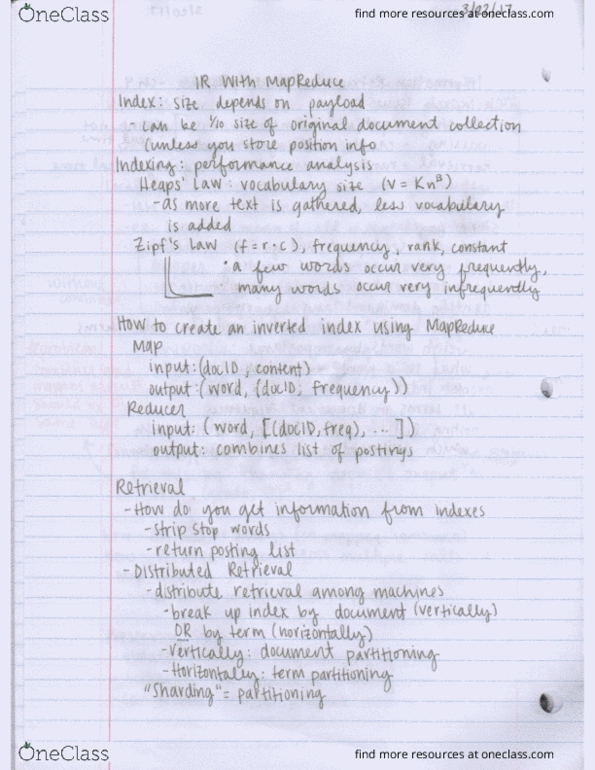 OneClass
find more resources at oneclass.com
3/02/17
IR With MapReduce
Index: size depends on payload
- can be 1/10 size of original document collection
(unless you store position info
Indexing: performance analysis
Heaps' Law: vocabulary size (V = Kn^B)
- as more text is gathered, less vocabulary
is added
Zipf's Law (f = r · c), frequency, rank, constant
• a few words occur very frequently,
many words occur very infrequently
How to create an inverted index using MapReduce
Map
input: (docID, content)
output: (word, (docID, frequency))
Reducer
input: (word, [(docID, freq), ... ])
output: combines list of postings
Retrieval
- How do you get information from indexes
- strip stop words
- return posting list
- Distributed Retrieval
- distribute retrieval among machines
- break up index by document (vertically)
OR by term (horizontally)
- Vertically: document partitioning
- Horizontally: term partitioning
"Sharding" = partitioning
OneClass
find more resources at oneclass.com